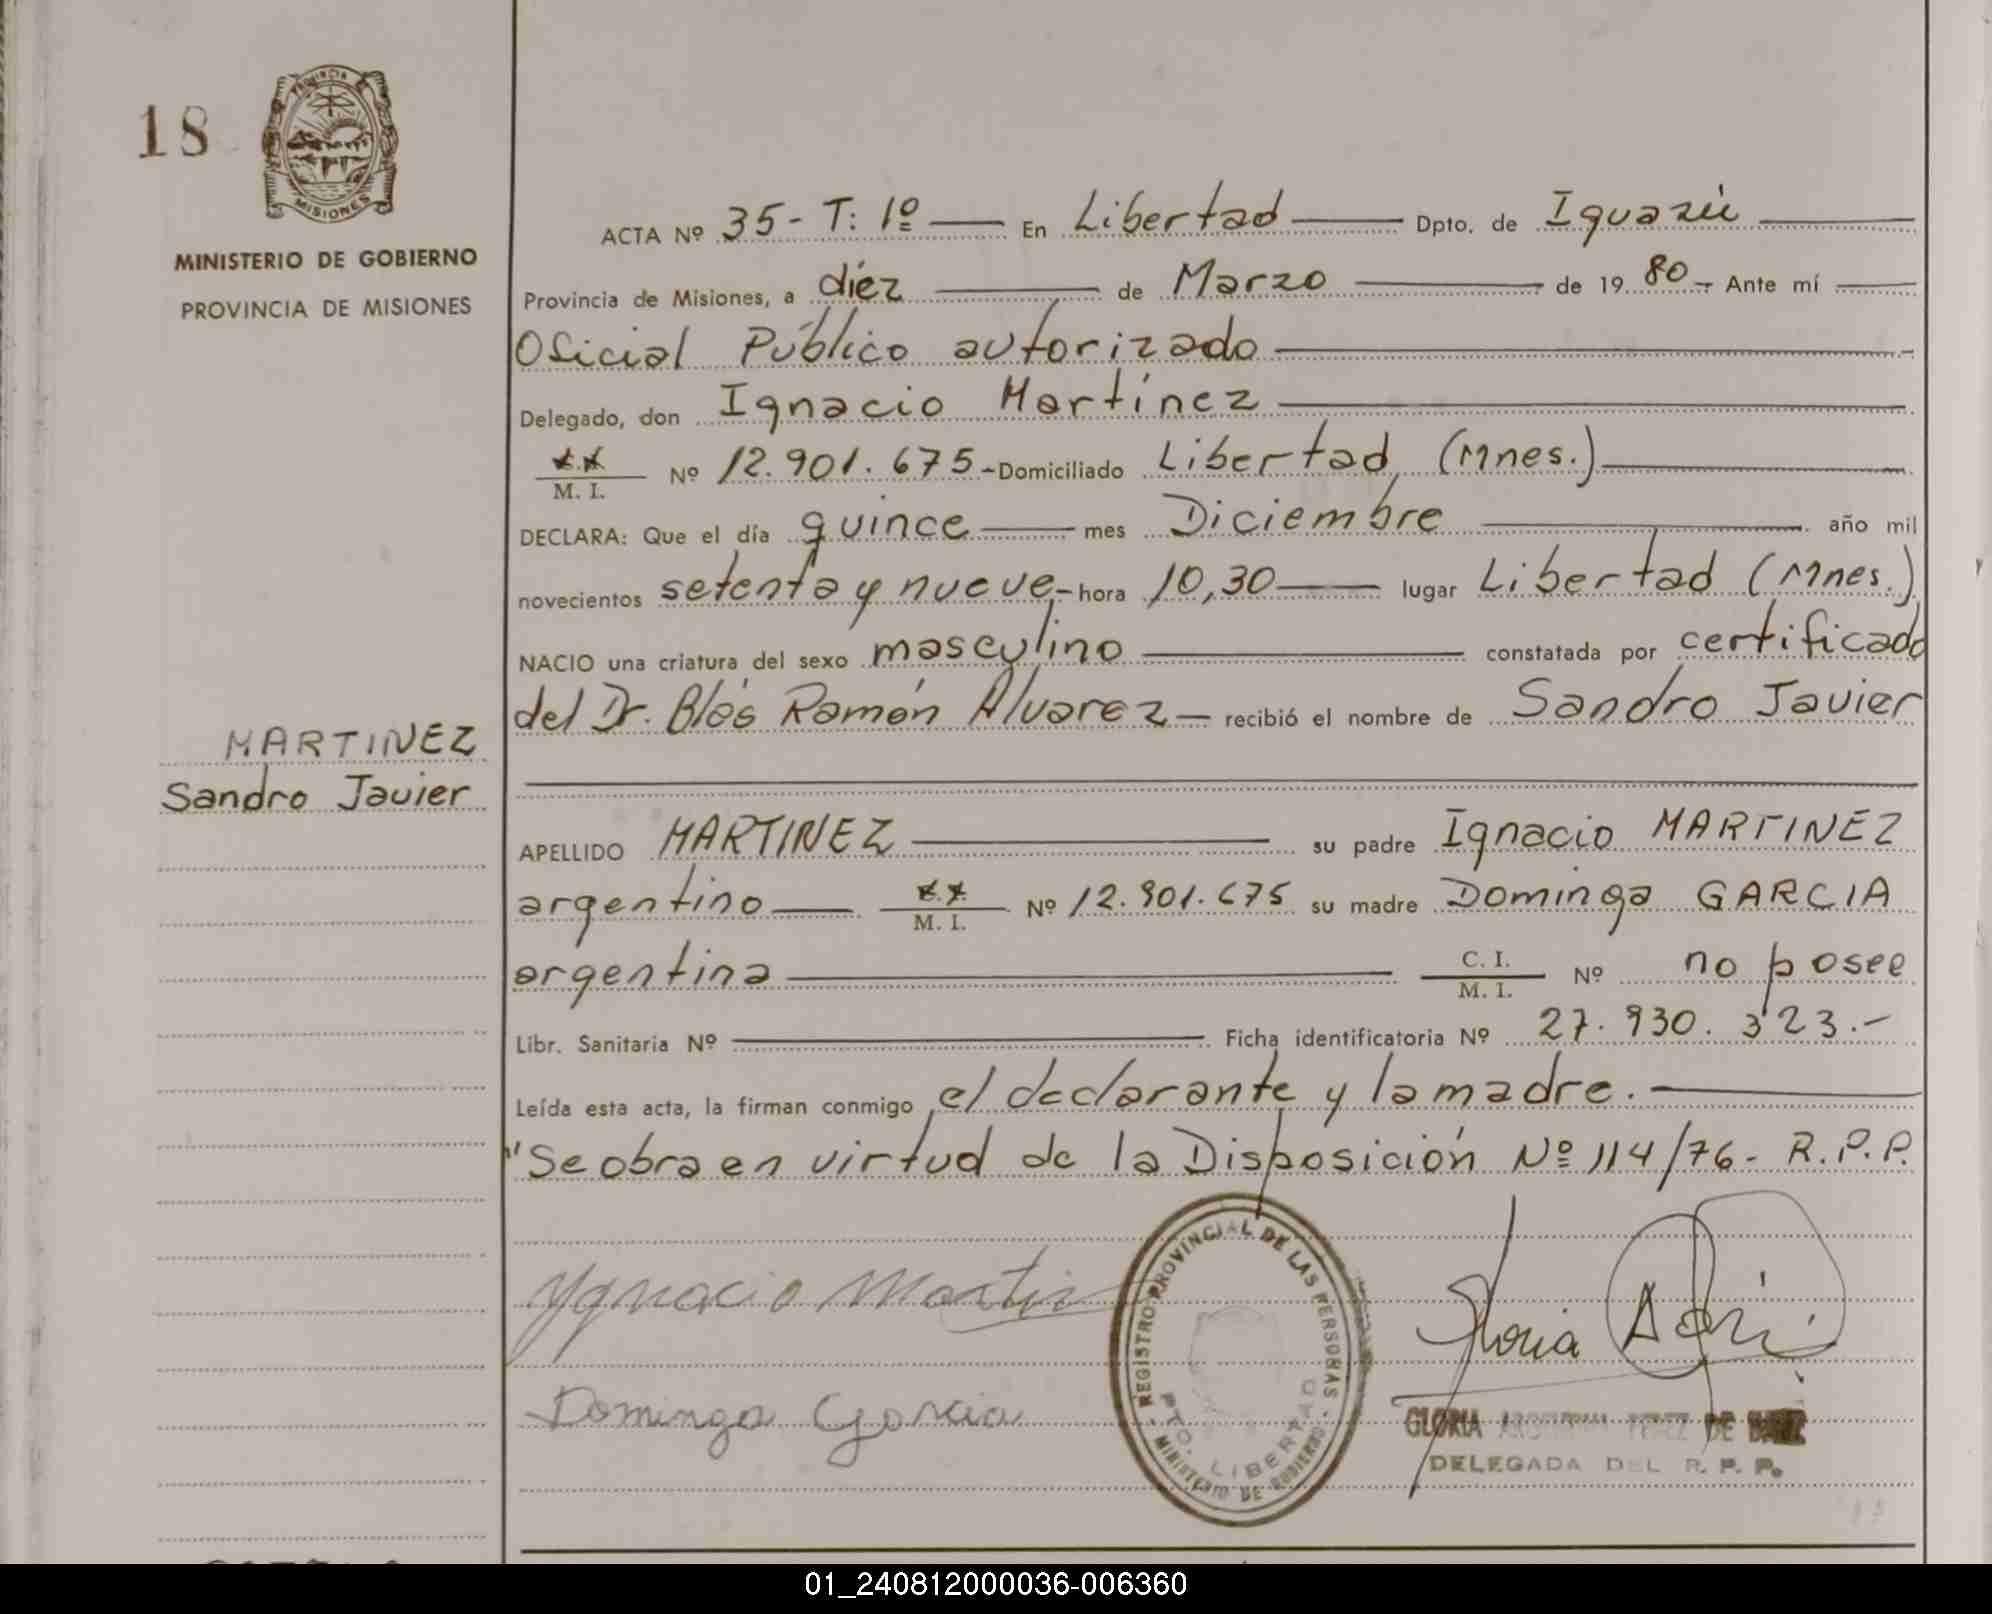 18
PROVINCIA DE
MISIONES
MINISTERIO DE GOBIERNO
PROVINCIA DE MISIONES
ACTA Nº 35 - T: 1º En Libertad Dpto. de Iguazú
Provincia de Misiones, a diez de Marzo de 19 80.- Ante mí
Oficial Público autorizado
Delegado, don Ignacio Martínez
M. I. Nº 12.901.675 - Domiciliado Libertad (Mnes.)
DECLARA: Que el día quince mes Diciembre año mil
novecientos setenta y nueve - hora 10,30 lugar Libertad (Mnes.)
NACIO una criatura del sexo masculino constatada por certificado
del Dr. Blás Ramón Alvarez - recibió el nombre de Sandro Javier
MARTINEZ
Sandro Javier
APELLIDO MARTINEZ su padre Ignacio MARTINEZ
argentino M. I. Nº 12.901.675 su madre Dominga GARCIA
argentina C. I. M. I. Nº no posee
Libr. Sanitaria Nº Ficha identificatoria Nº 27.930.323.-
Leída esta acta, la firman conmigo el declarante y la madre.
"Se obra en virtud de la Disposición Nº 114/76 - R.P.P.
Ygnacio Martin
Dominga Garcia
REGISTRO PROVINCIAL DE LAS PERSONAS - MINISTERIO DE GOBIERNO -
PTO. LIBERTAD
Gloria
GLORIA DE
DELEGADA DEL R. P. P.
01_240812000036-006360